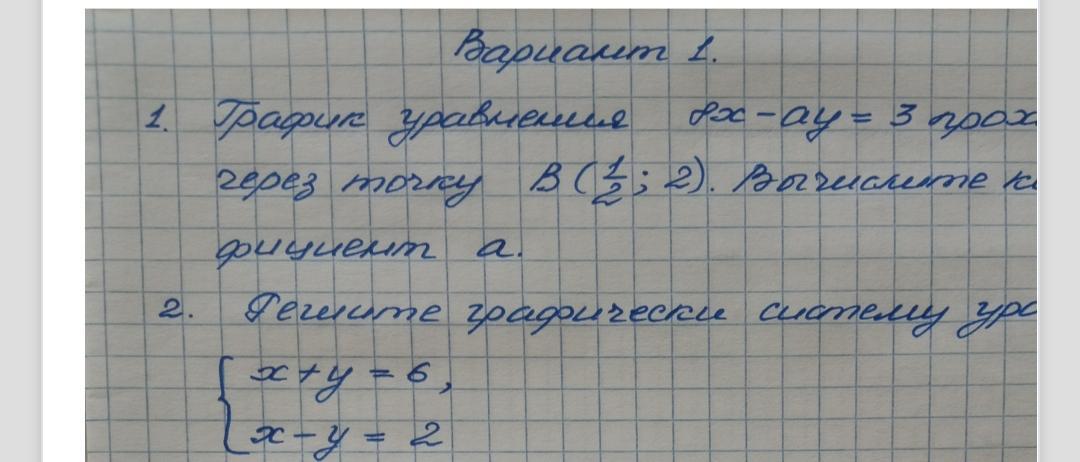 Вариант 1.
1. График уравнения 8x - ay = 3 прох
через точку B (1/2; 2). Вычислите к
фициент a.
2. Решите графически систему ура
{ x + y = 6,
x - y = 2